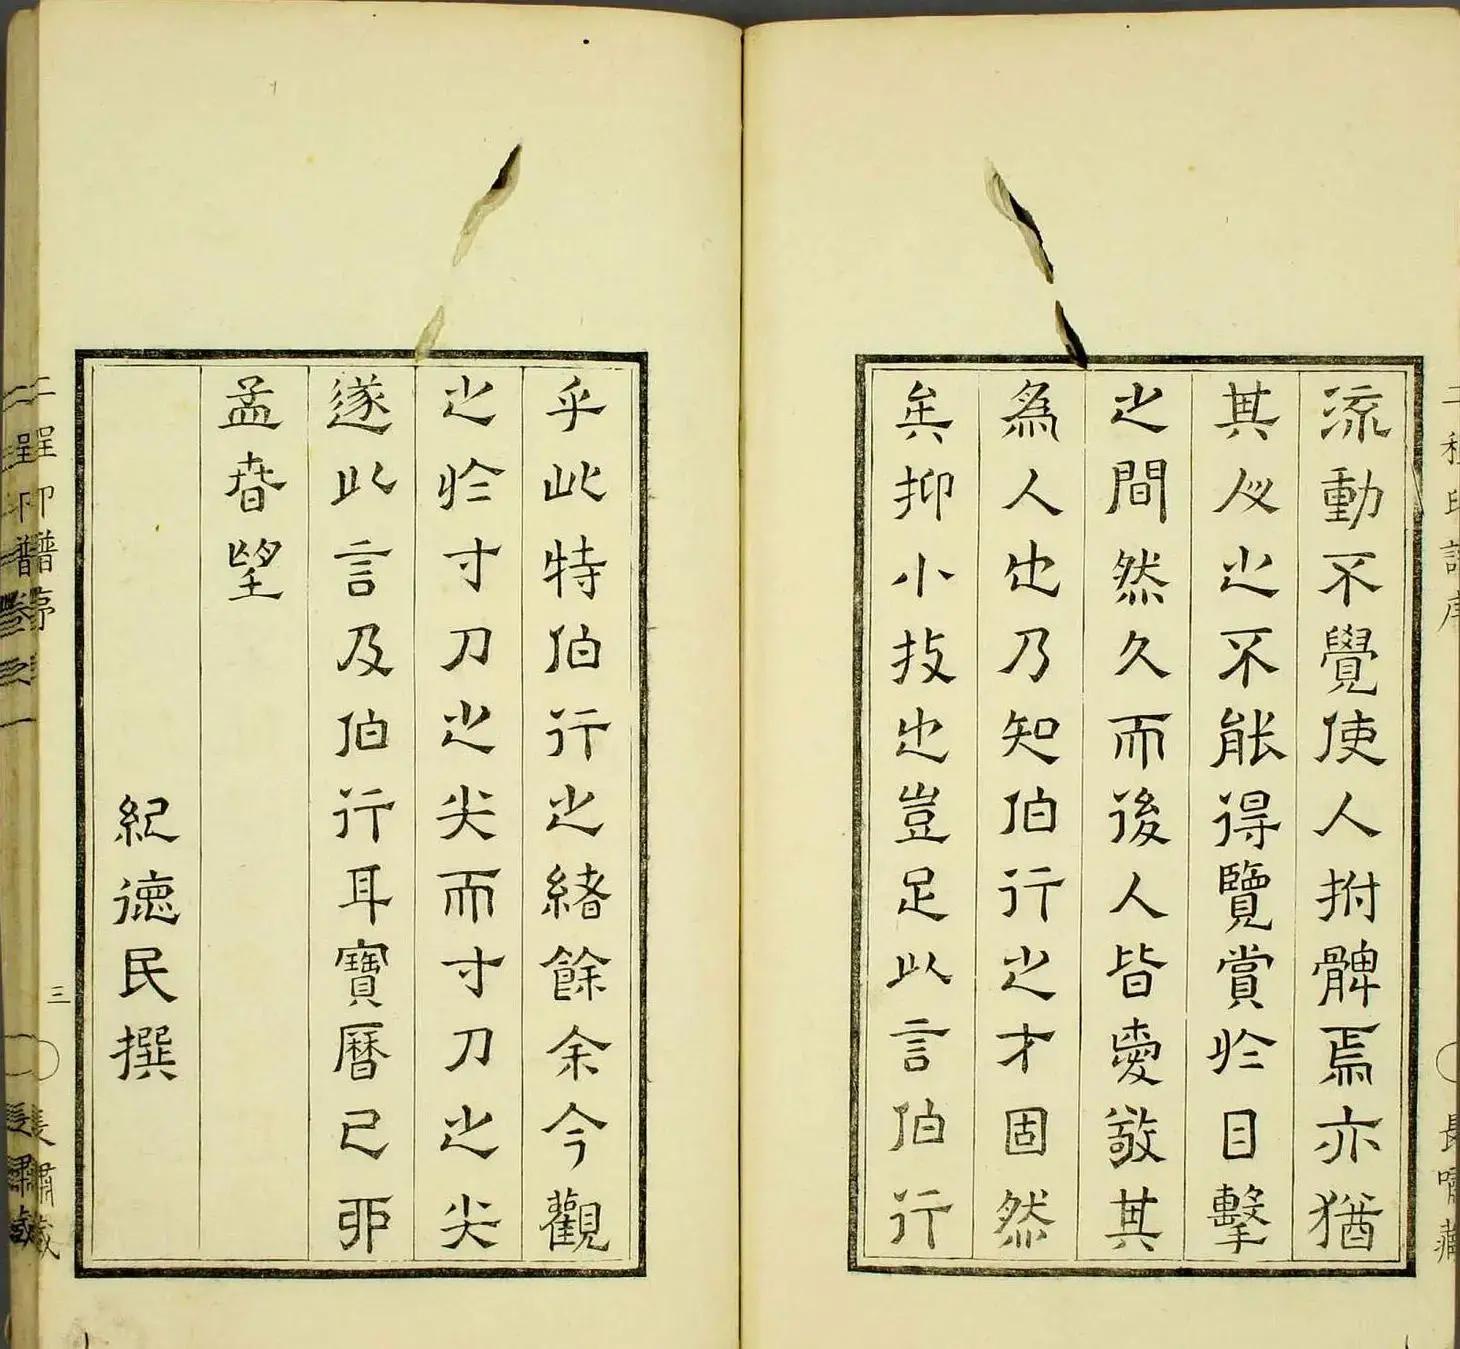 流動不覺使人拊髀焉亦猶
其人之不能得覽賞於目擊
之間然久而後人皆愛敬其
為人也乃知伯行之才固然
矣抑小技也豈足以言伯行
乎此特伯行之緒餘余今觀
之於寸刀之尖而寸刀之尖
遂此言及伯行耳寶曆己卯
孟春望
紀德民撰
三
長嘯藏